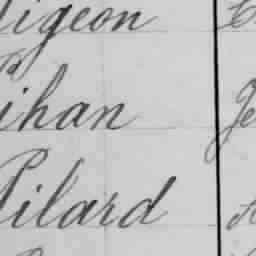 Pigeon
Pihan
Pilard